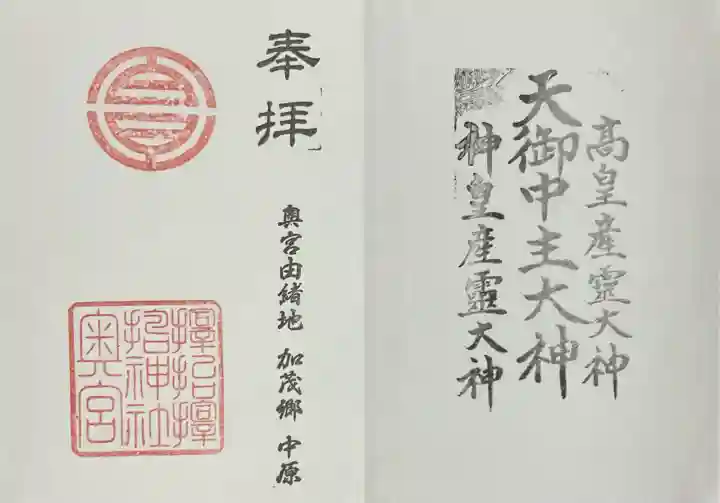 高皇産靈大神
天御中主大神
神皇産靈大神
奉拝
奥宮由緒地 加茂郷 中原
招神社
奥宮